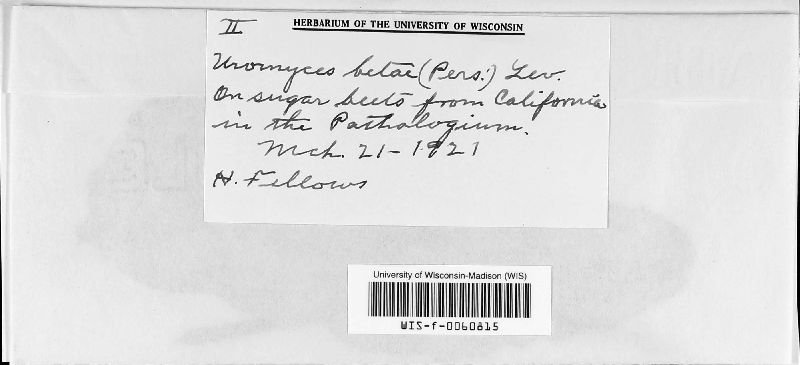 II
HERBARIUM OF THE UNIVERSITY OF WISCONSIN
Uromyces betae (Pers.) Lev.
On sugar beets from California
in the Pathologium.
Mch. 21-1921
H. Fellows
University of Wisconsin-Madison (WIS)
WIS-f-0060815